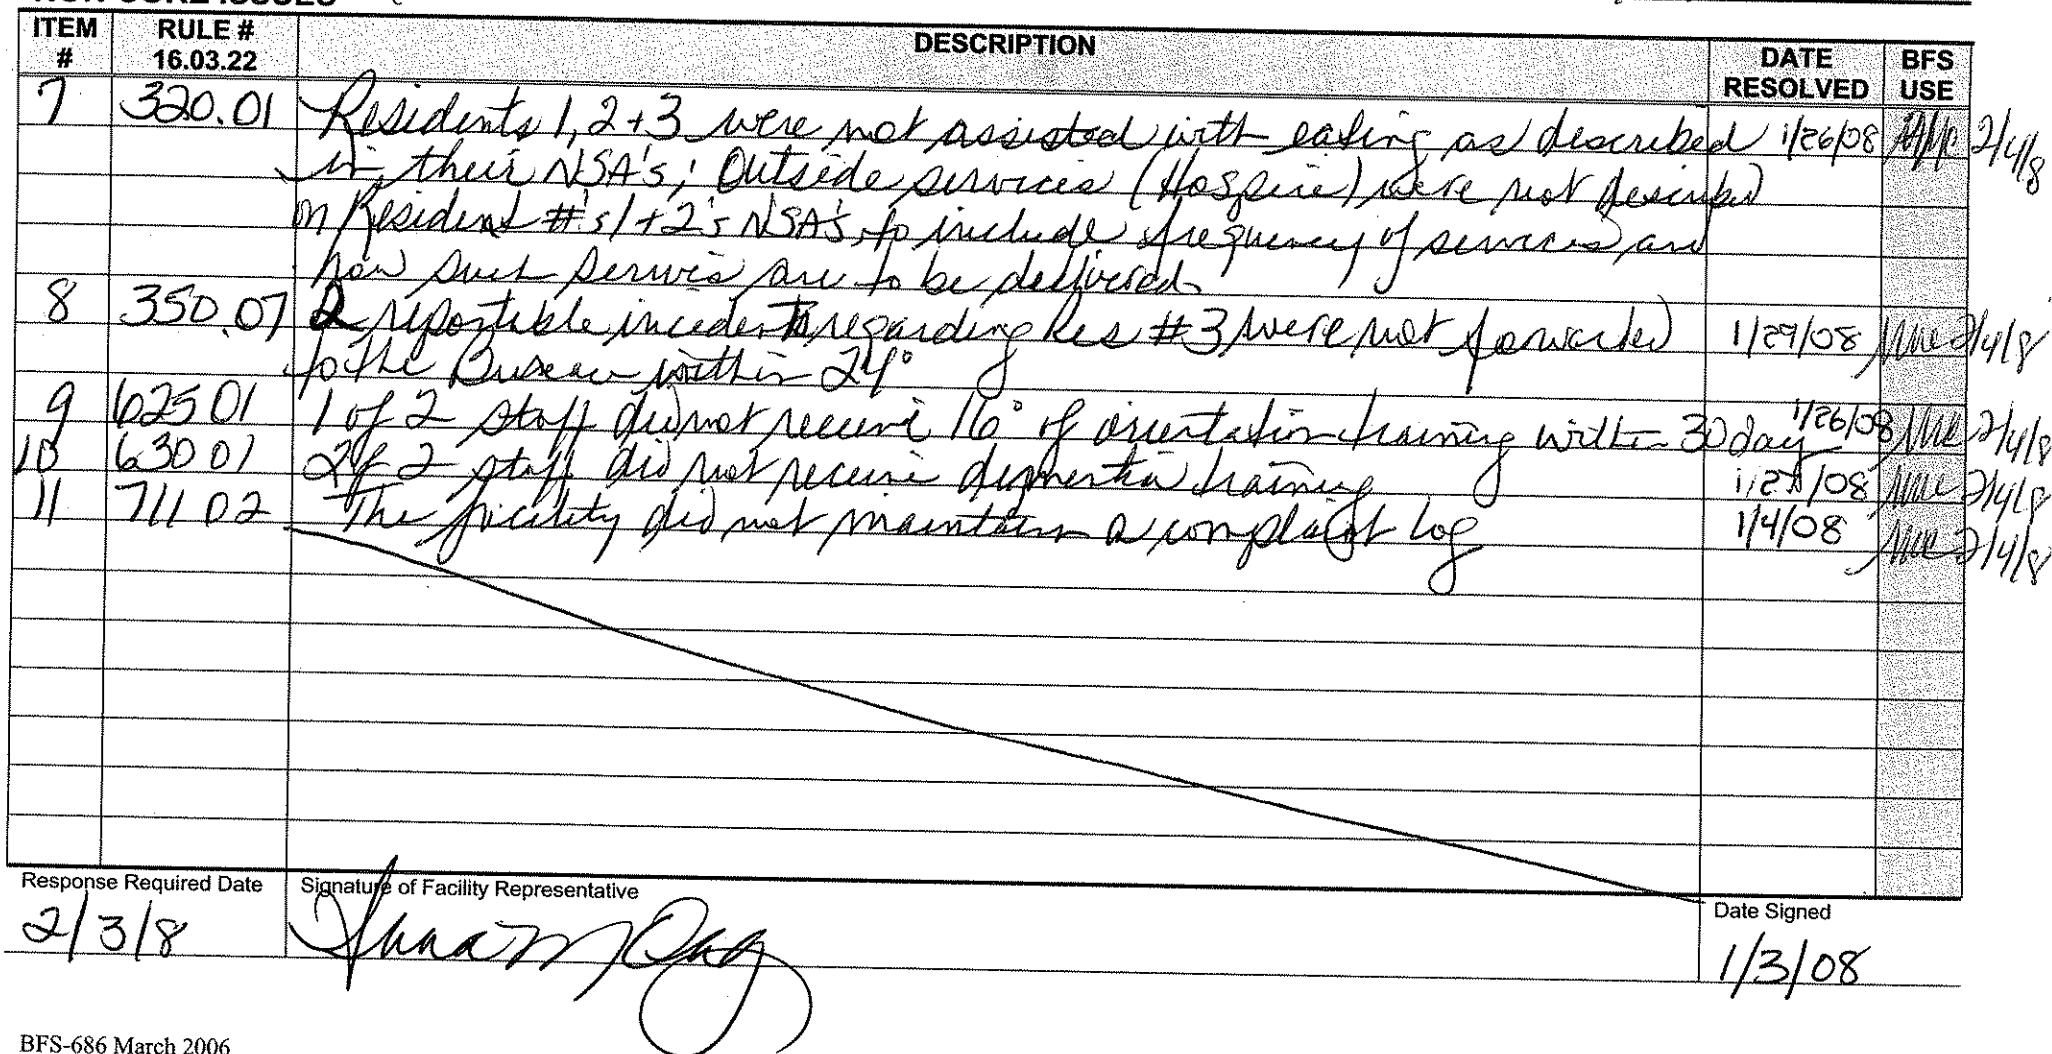 NON-CORE ISSUES
ITEM # RULE # 16.03.22 DESCRIPTION DATE RESOLVED BFS USE
7 320.01 Residents 1, 2 + 3 were not assisted with eating as described 1/26/08 2/4/8
in their NSA's; Outside services (Hospice) were not described
on Resident #'s 1 + 2's NSA's, to include frequency of services and
how such servies are to be delivered.
8 350.07 2 reportable incidents regarding Res #3 were not forwarded 1/29/08 2/4/8
to the Bureau within 24°
9 625 01 1 of 2 staff did not receive 16° of orientation training within 30 day 1/26/08 2/4/8
10 630 01 2 of 2 staff did not receive dementia training 2/4/8
11 711 02 The facility did not maintain a complaint log 1/4/08 2/4/8
Response Required Date Signature of Facility Representative Date Signed
2/3/8 1/3/08
BFS-686 March 2006